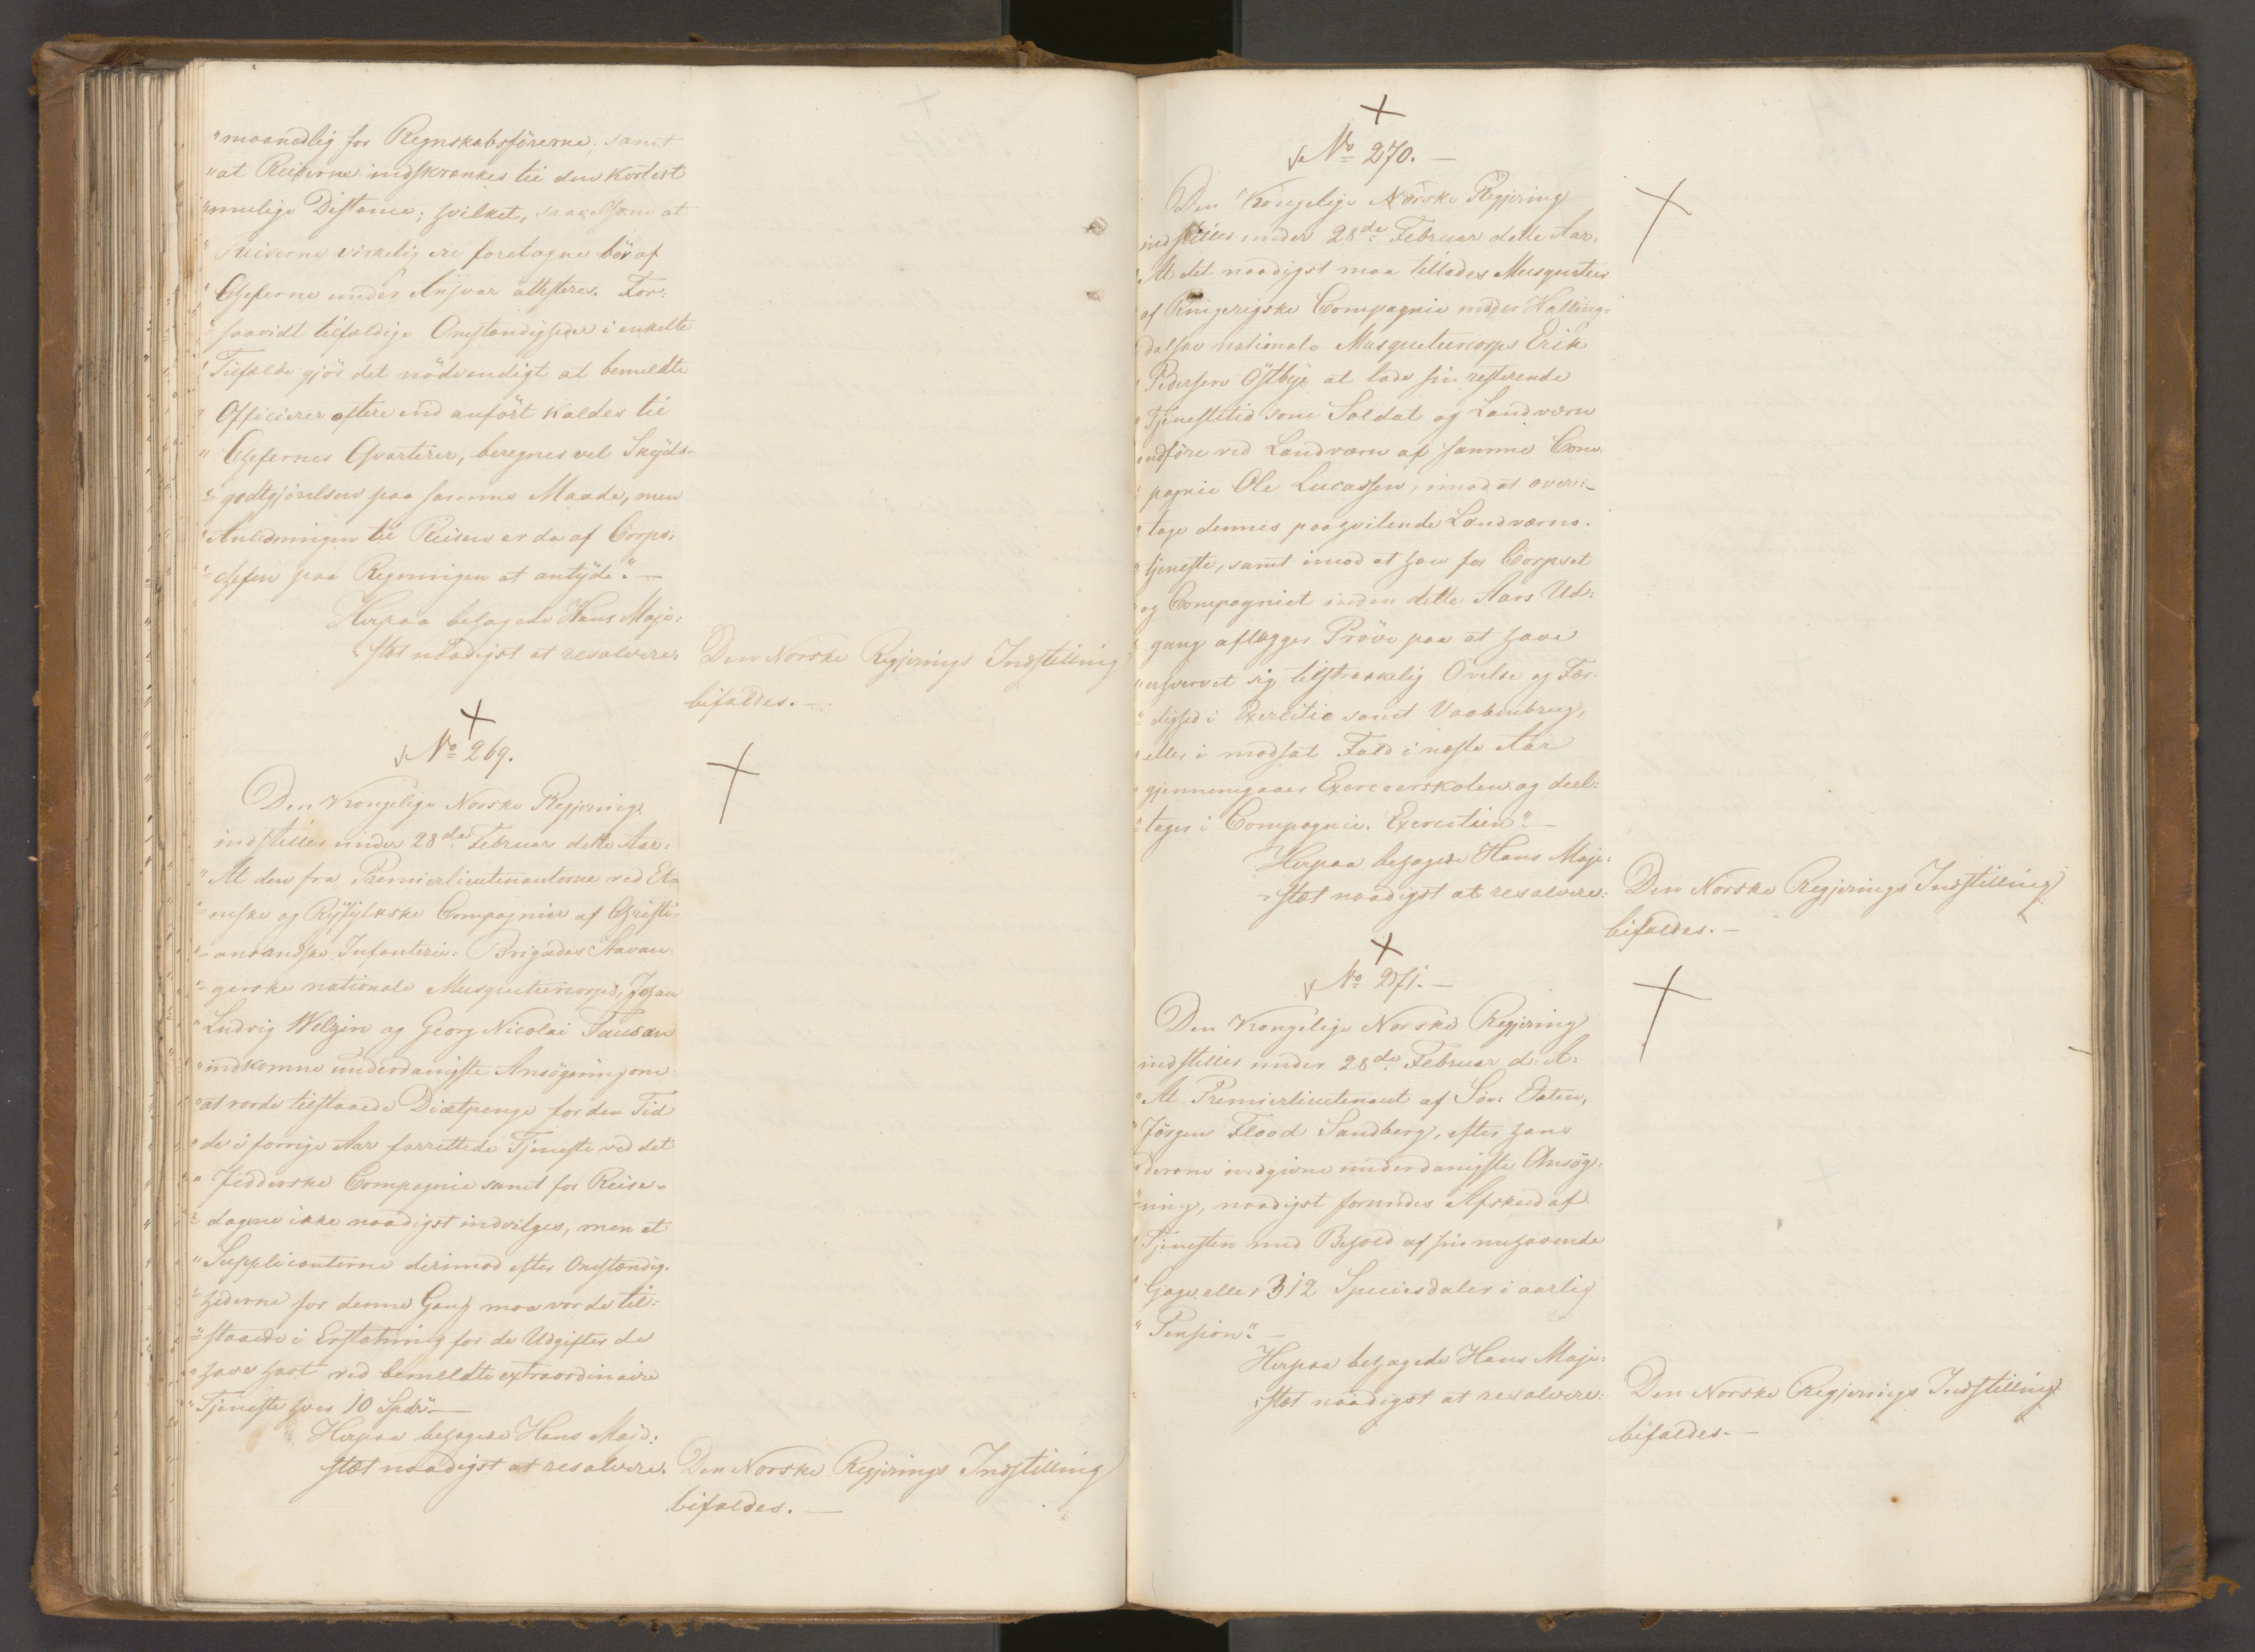 "maanedlig for Regnskabsförerne; samt
"at Reiserne indskrænkes til den kortest
"mulige Distance; hvilket, saavelsom at
"Reiserne virkelig ere foretagne bör af
"Cheferne under Ansvar attesteres. For:
"saavidt tilfældige Omstændigheder i enkelte
"Tilfælde gjör det nödvendigt at bemeldte
"Officierer oftere end anfört kaldes til
"Chefernes Qvarterer, beregnes vel Skyds-
"godtgjörelsen paa samme Maade, men
"Anledningen til Reisen er da af Corps:
"chefen paa Regningen at antyde". —
Herpaa behagede Hans Maje:
:stæt naadigst at resolvere:
Den Norske Regjerings Indstilling
bifaldes. —
No 269.
Den Kongelige Norske Regjering
indstiller under 28de Februar dette Aar:
"At den fra Premierlieutenanterne ved Et=
"neske og Ryfylkske Compagnier af Christi=
"ansandske Infanterie: Brigades Stavan
"gerske nationale Musqueteercorps, Johan
"Ludvig Welzin og Georg Nicolai Tausan
"indkomne underdanigste Ansögning om
"at vorde tilstaaede Diætpenge for den Tid
"de i forrige Aar forrettede Tjeneste ved det
"Jedderske Compagnie samt for Reise=
"dagene ikke naadigst indvilges, men at
"Supplicanterne derimod efter Omstændig.
"hederne for denne Gang maa vorde til=
"staaede i Erstatning for de Udgifter de
"have havt ved bemeldte extraordinaire
"Tjeneste hver 10 Spdr" —
Herpaa behagede Hans Maje:
stæt naadigst at resolvere.
Den Norske Regjerings Indstilling
bifaldes. —
No 270. —
Den Kongelige Norske Regjering
indstiller under 28de Februar dette Aar.
"At det naadigst maa tillades Musqueteer
af Ringerigske Compagnie under Halling=
dalske nationale Musqueteercorps Erik
"Pedersen Östbye at lade sin resterende
"Tjenestetid som Soldat og Landværn
udföre ved Landværn af samme Com
"pagnie Ole Lucassen, imod at over:
"tage dennes paahvilende Landværns.
"tjeneste, samt imod at han for Corpset
"og Compagniet inden dette Aars Ud:
"gang aflægger Pröve paa at have
"erhvervet sig tilstrækkelig Övelse og Fær.
"dighed i Exercitie samt Vaabenbrug,
"eller i modsat Fald i næste Aar
"gjennemgaaer Exerceerskolen og deel:
"tager i Compagnie. Exercitien" —
Herpaa behagede Hans Maje:
stæt naadigst at resolvere:
Den Norske Regjerings Indstilling
bifaldes. —
No 271. —
Den Kongelige Norske Regjering
indstiller under 28de Februar d. A:
"At Premierlieutenant af Söe: Etaten,
"Jörgen Flood Sandberg, efter hans
derom indgivne underdanigste Ansög:
"ning, naadigst forundes Afskeed af
"Tjenesten med Behold af sin nuhavende
"Gage eller 312 Speciesdaler i aarlig
"Pension". —
Herpaa behagede Hans Maje:
:stæt naadigst at resolvere:
Den Norske Regjerings Indstilling
bifaldes. —